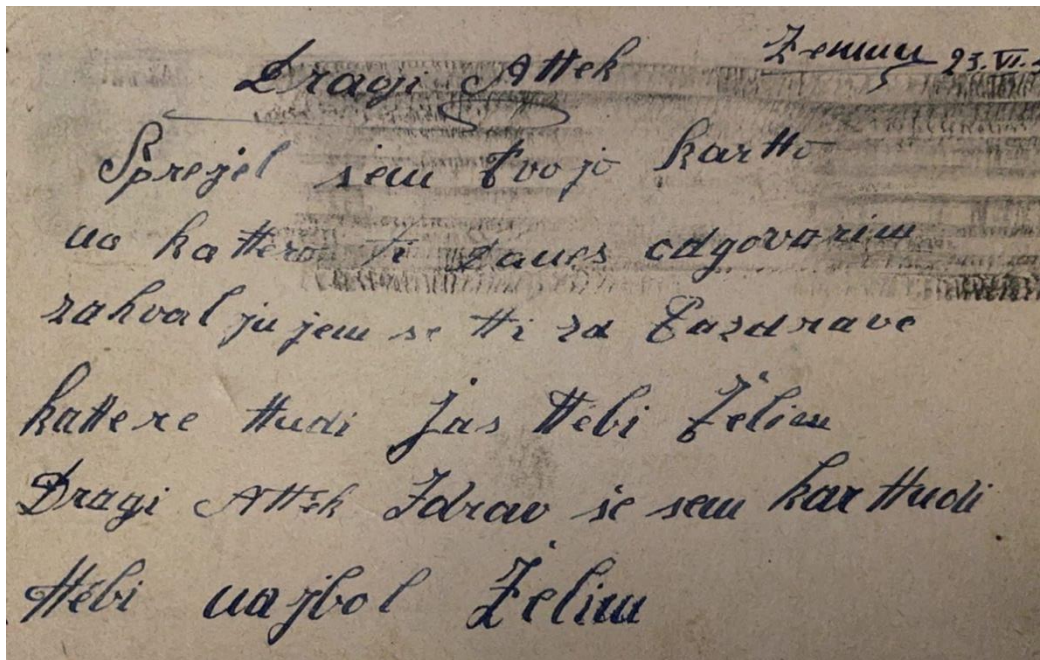 Zemun, 23.VI.
Dragi Atek
Sprejel sem tvojo karto
na katero ti danes odgovarim
zahvaljujem se ti za Pazdrave
katere tudi Jas tebi Želim
Dragi Atek Zdrav še sem kar tudi
tebi najbol Želim